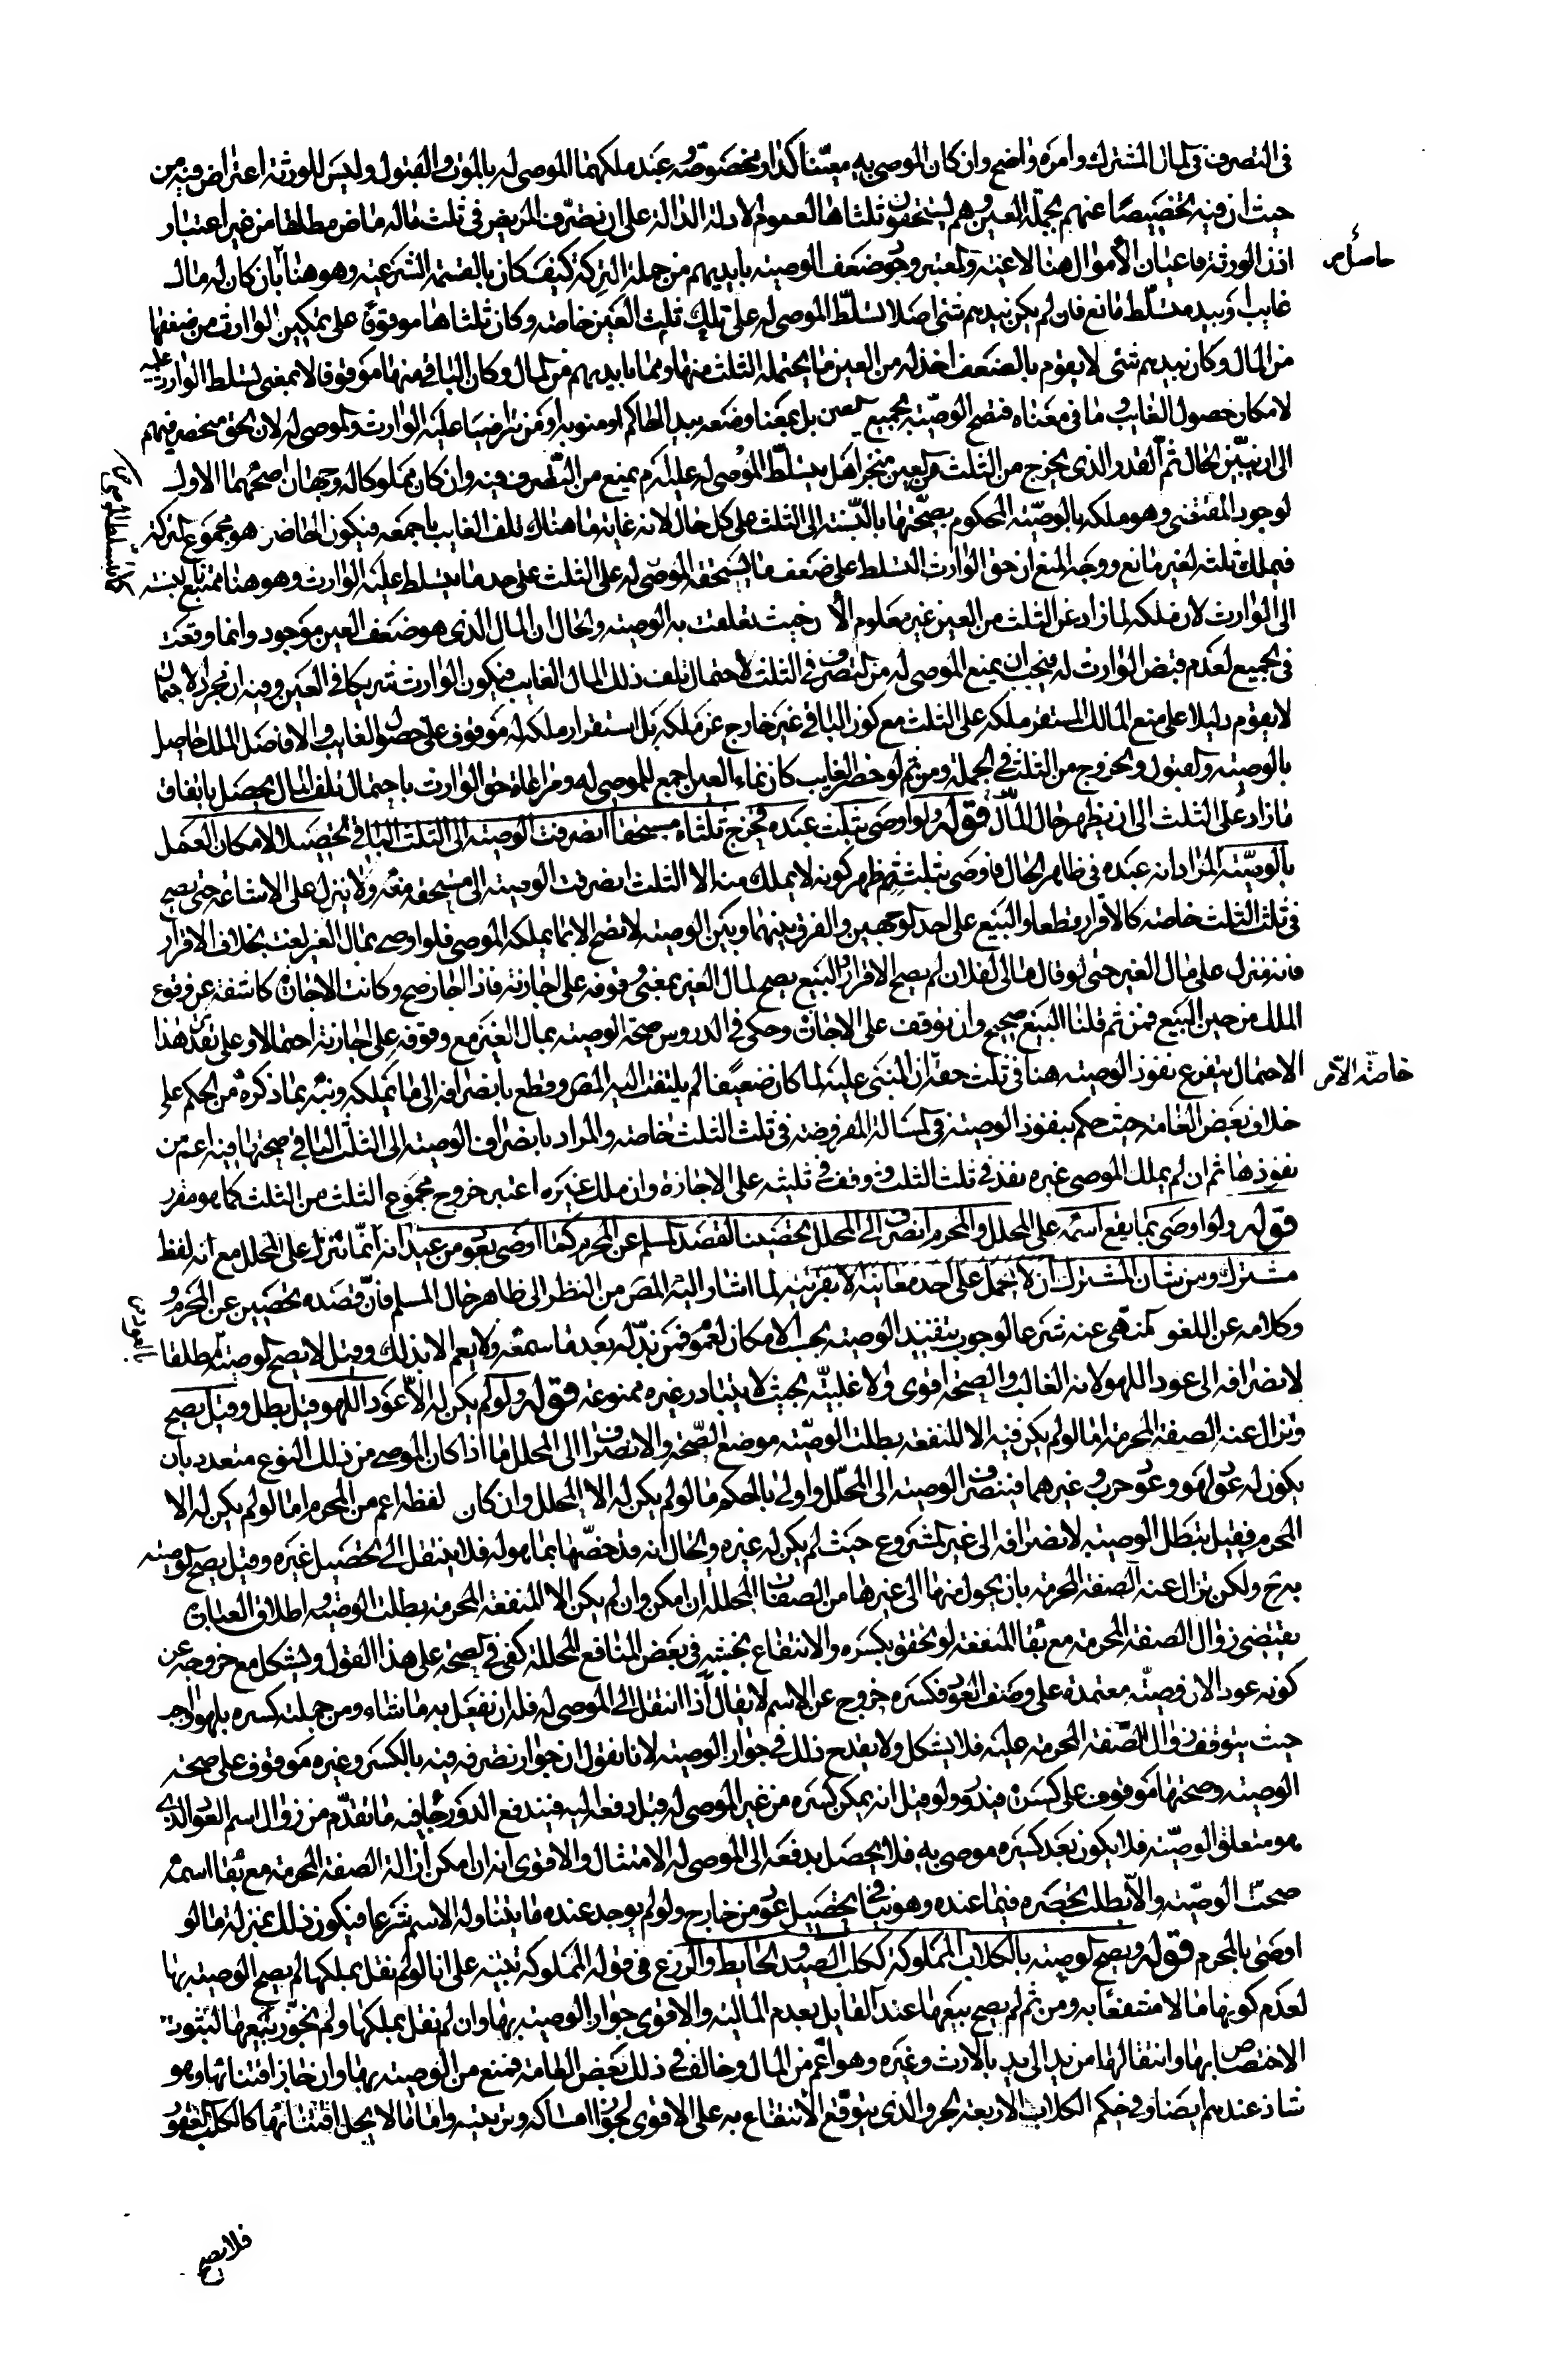 في التصرف في المال المشترك وامره واضح وان كان الموصى به معينا كدار مخصوصة وعبد ملكهما الموصى له بالموت والقبول وليس للورثة اعتراض فيه من
حيث ان فيه تخصيصا عنهم بجملة العين وهم يستحقون ثلثاها لعموم الادلة الدالة على ان تصرف المريض في ثلث ماله ماض مطلقا من غير اعتبار
اذن الورثة باعيان الأموال هنا لاغية والمعتبر وجود ضعف الوصية بايديهم من جملة التركة كيف كان بالقسمة الشرعية وهو هنا بان كان له مال
حاصل ص
غايب او بيد متسلط مانع فان لم يكن بيدهم شئ اصلا تسلط الموصى له على تملك ثلث العين خاصة وكان ثلثاها موقوفا على تمكين الوارث من ضعفها
من المال وكان بيدهم شئ لا يقوم بالضعف اخذ له من العين ما يحتمله الثلث منها ومما بايديهم من المال وكان الباقي منها موقوفا لا بمعنى تسلط الوارث عليه
لامكان حصول الغايب وما في معناه فتصح الوصية بجميع العين بل بمعنى وضعه بيد الحاكم او منوبه او من تراضيا عليه الوارث والموصى له لان الحق منحصر فيهم
الى ان يتبين الحال ثم القدر الذي يخرج من الثلث من العين منجزا هل يتسلط الموصى له عليه ام يمنع من التصرف فيه وان كان مملوكا له وجهان اصحهما الاول
لوجود المقتضي وهو ملكه بالوصية المحكوم بصحتها بالنسبة الى الثلث على كل حال لانه غاية ما هناك تلف الغايب باجمعه فيكون الحاضر هو مجموع التركة
فيملك ثلثه لغير مانع ووجه المنع ان حق الوارث التسلط على ضعف ما يستحقه الموصى له على الثلث على حد ما يتسلط عليه الوارث وهو هنا ممتنع بنسبته
الى الوارث لان ملكه لما زاد عن الثلث من العين غير معلوم الآن حيث تعلقت به الوصية والحال ان المال الذي هو ضعف العين موجود وانما وقعت
في الجميع لعدم قبض الوارث له فيجب ان يمنع الموصى له من التصرف في الثلث لاحتمال تلف ذلك المال الغايب فيكون الوارث شريكا في العين وفيه ان مجرد الاحتمال
لا يقوم دليلا على منع المالك المستقر ملكه على الثلث مع كون الباقي غير خارج عن ملكه بل استقرار ملكه له موقوف على حصول الغايب والا فاصل الملك حاصل
بالوصية والقبول والخروج من الثلث في الجملة ومن ثم لو حضر الغايب كان نماء العين اجمع للموصى له ومراعاة حق الوارث باحتمال تلف المال يحصل بايقاف
ما زاد على الثلث الى ان يظهر حال المال قوله ولو اوصى بثلث عبده فخرج ثلثاه مستحقا انصرفت الوصية الى الثلث الباقي تحصيلا لامكان العمل
بالوصية المراد انه عبده في ظاهر الحال فاوصى بثلثه ثم ظهر كونه لا يملك منه الا الثلث انصرفت الوصية الى مستحقه منه ولا ينزل على الاشاعة حتى يصح
في ثلث الثلث خاصة كالاقرار قطعا والبيع على احد الوجهين والفرق بينهما وبين الوصية لا تصح الا بما يملكه الموصي فلو اوصى بمال الغير لغت بخلاف الاقرار
فانه منزل على مال الغير حتى لو قال مالي لفلان لم يصح الاقرار والبيع يصح لمال الغير بمعنى وقوفه على اجازته فاذا اجاز صح وكانت الاجازة كاشفة عن وقوع
الملك من حين البيع فمن ثم قلنا البيع صحيح وان توقف على الاجازة وحكى في الدروس صحة الوصية بمال الغير مع وقوفه على اجازته احتمالا وعلى تقدير هذا
الاحتمال يتفرع نفوذ الوصية هنا في ثلث حقه ان المبنى عليه لما كان ضعيفا لم يلتفت اليه المص وقطع بانصرافه الى ما يملكه ونبه بما ذكره من الحكم على
خاصة الا ص
خلاف بعض العامة حيث حكم بنفوذ الوصية في المسالة المفروضة في ثلث الثلث خاصة والمراد بانصراف الوصية الى الثلث الباقي صحتها فيه اعم من
نفوذها ثم ان لم يملك الموصي غيره نفذ في ثلث الثلث ووقف في ثلثيه على الاجازة وان ملك غيره اعتبر خروج مجموع الثلث من الثلث كما هو مقرر
قوله ولو اوصى بما يقع اسمه على المحلل والمحرم انصرف الى المحلل تحصينا لقصد المسلم عن المحرم كما اوصى بعود من عيدانه انما ينزل على المحلل مع انه لفظ
مشترك ومن شان المشترك ان لا يحمل على احد معانيه الا بقرينة لما اشار اليه المص من النظر الى ظاهر حال المسلم فان قصده تحصين عن المحرم و
وكلامه عن اللغو المنهى عنه شرعا لوجوب تنفيذ الوصية بحسب الامكان لعموم فمن بدله بعد ما سمعه ولا يعم الا بذلك وقيل لا يصح الوصية مطلقا
لانصرافه الى عود اللهو لانه الغالب والصحة اقوى والاغلبية بحيث لا يتبادر غيره ممنوعة قوله ولو لم يكن له الا عود اللهو قيل يبطل وقيل يصح
وتزال عنه الصفة المحرمة اما لو لم يكن فيه الا المنفعة بطلت الوصية موضع الصحة والانصراف الى المحلل ما اذا كان الموصي من ذلك النوع متعدد بان
يكون له عود لهو وعود حرب وغيرهما فينصرف الوصية الى المحلل واولى بالحكم ما لو لم يكن له الا المحلل وان كان لفظه اعم من المحرم اما لو لم يكن له الا
المحرم فقيل تبطل الوصية لانصرافه الى غير المشروع حيث لم يكن له غيره والحال انه قد خصها بما هو له فلا ينتقل الى تحصيل غيره وقيل يصح الوصية
به ح ولكن تزال عنه الصفة المحرمة بان يحول منها الى غيرها من الصفات المحللة ان امكن وان لم يكن الا المنفعة المحرمة بطلت الوصية واطلاق العبارة
يقتضي زوال الصفة المحرمة مع بقا المنفعة لو تحقق بكسره والانتفاع بخشبه في بعض المنافع المحللة كفى في الصحة على هذا القول ويشكل مع خروجه عن
كونه عودا لان وصيته معتمدة على وصف العود فكسره خروج عن الاسم لا يقال اذا انتقل الى الموصى له فله ان يفعل به ما شاء ومن جملته كسره بل هو واجب
حيث يتوقف زوال الصفة المحرمة عليه فلا يشكل ولا يقدح ذلك في جواز الوصية لانا نقول ان جواز تصرفه فيه بالكسر وغيره موقوف على صحة
الوصية وصحتها موقوف على كسره فيدور ولو قيل انه يمكن كسره من غير الموصى له قبل دفعه اليه فيندفع الدور جا فيه ما تقدم من زوال اسم العود الذي
هو متعلق الوصية فلا يكون بعد كسره موصى به فلا يحصل بدفعه الى الموصى له الامتثال والاقوى انه ان امكن ازالة الصفة المحرمة مع بقا اسمه
صحت الوصية والا بطلت لحصره فيما عنده وهو ينافي تحصيل عود من خارج ولو لم يوجد عنده ما يتناوله الاسم شرعا فيكون ذلك بمنزلة ما لو
اوصى بالمحرم قوله ويصح الوصية بالكلاب المملوكة ككلب الصيد والحايط والزرع في قوله المملوكة تنبيه على انا لو لم نقل بملكها لم يصح الوصية بها
لعدم كونها مالا منتفعا به ومن ثم لم يصح بيعها عند القايل بعدم المالية والاقوى جواز الوصية بها وان لم نقل بملكها ولم نجوز بيعها لثبوت
الاختصاص بها وانتقالها من يد الى يد بالارث وغيره وهو اعم من المال وخالف في ذلك بعض العامة فمنع من الوصية بها وان جاز اقتنائها وهو
شاذ عندهم ايضا وفي حكم الكلاب الاربعة الجرو الذي يتوقع الانتفاع به على الاقوى لجواز امساكه وتربيته واما ما لا يحل اقتنائها كالكلب العقور
فلا يصح